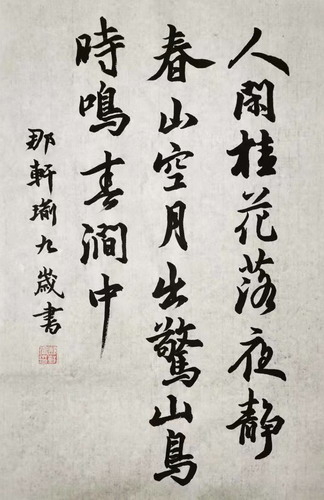 人閑桂花落夜靜
春山空月出驚山鳥
時鳴春澗中
那軒瑜九歲書